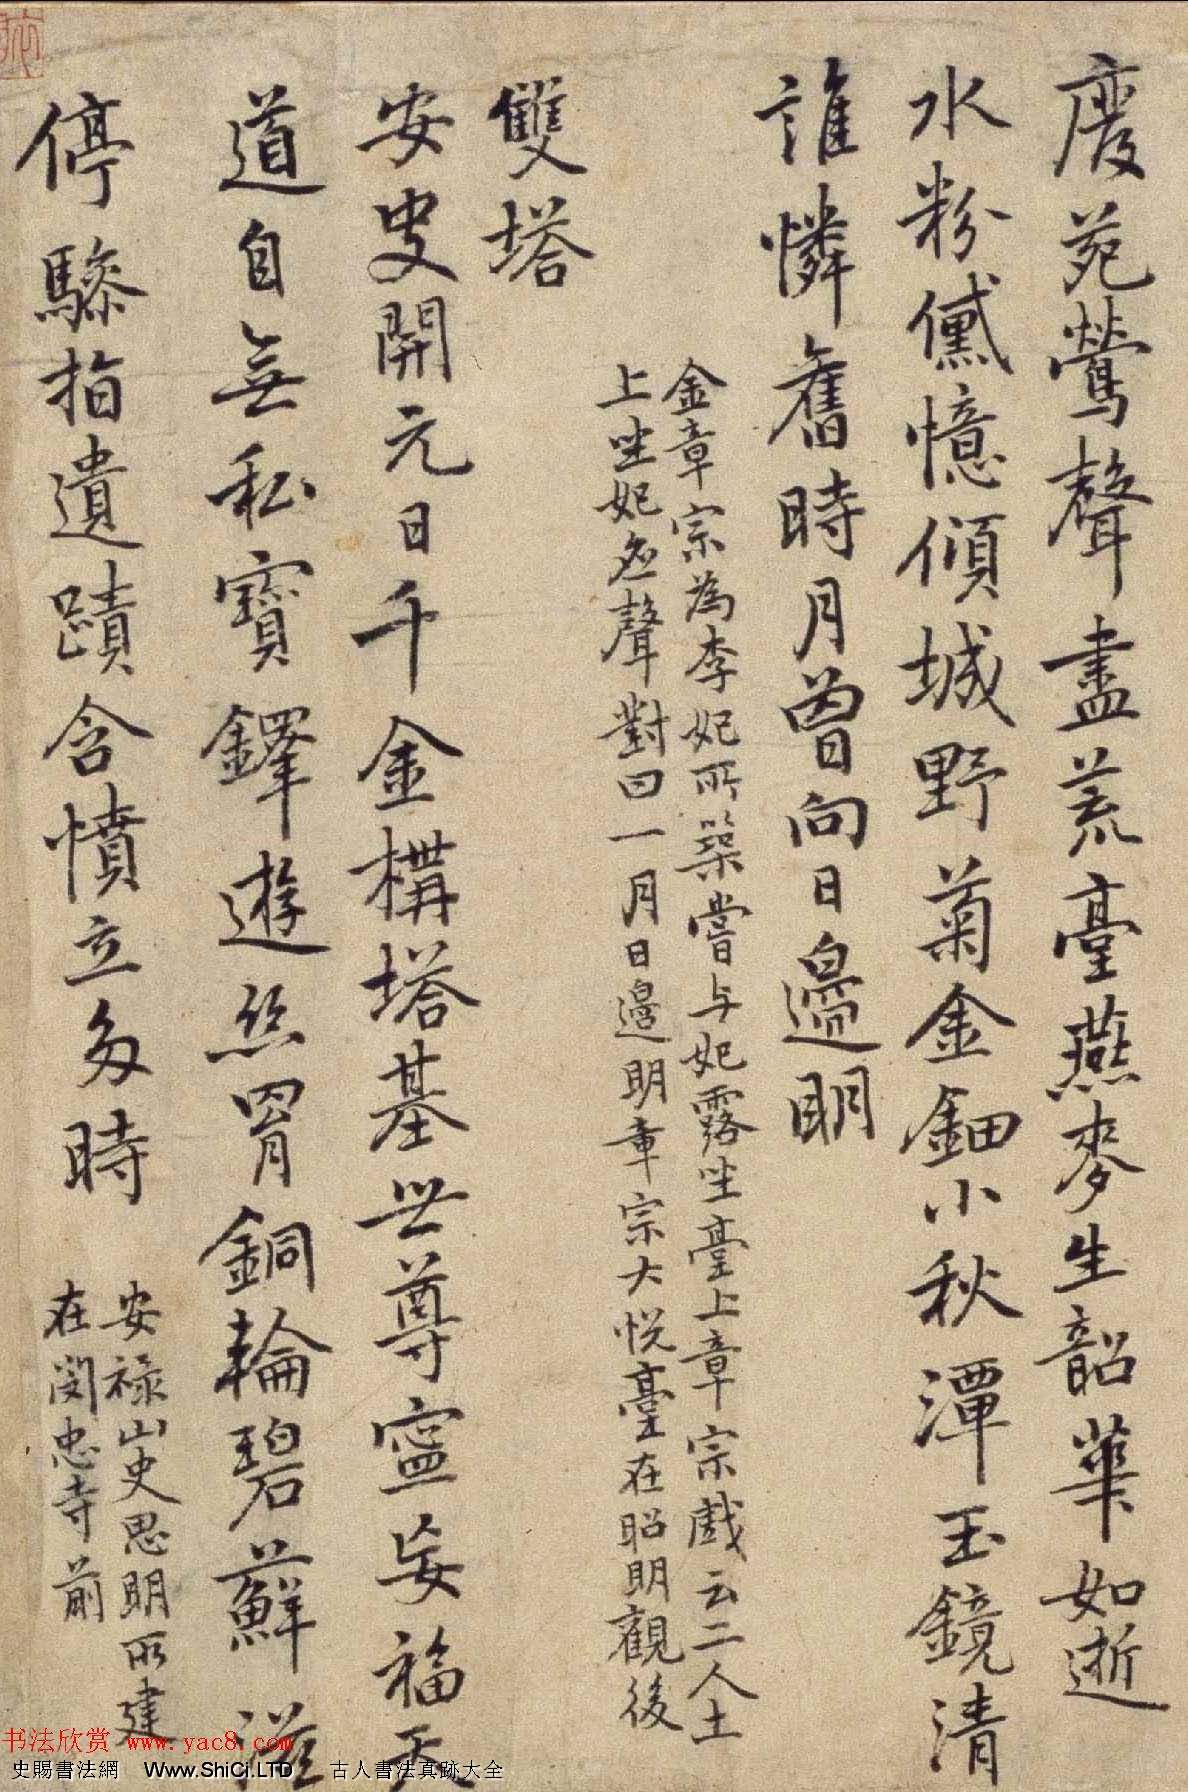 廢苑鶯聲盡荒臺燕麥生韶華如逝
水粉黛憶傾城野菊金鈿小秋潭玉鏡清
誰憐舊時月曾向日邊明
金章宗為李妃所築嘗与妃露坐臺上章宗戲云二人土
上坐妃應聲對曰一月日邊明章宗大悅臺在昭明觀後
雙塔
安史開元日千金構塔基世尊寧妄福天
道自無私寶鐸遊絲罥銅輪碧蘚滋
停驂指遺蹟含憤立多時
安祿山史思明所建
在閔忠寺前
书法欣赏 www.yac8.com
史賜書法網 Www.ShiCi.LTD 古人書法真跡大全